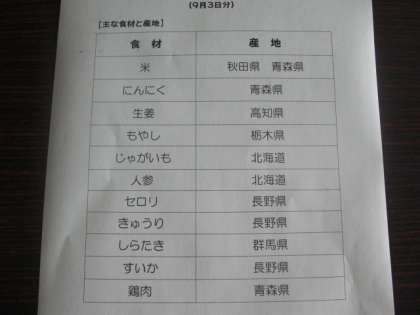 (9月3日分)
【主な食材と産地】
食 材 産 地
米 秋田県 青森県
にんにく 青森県
生姜 高知県
もやし 栃木県
じゃがいも 北海道
人参 北海道
セロリ 長野県
きゅうり 長野県
しらたき 群馬県
すいか 長野県
鶏肉 青森県